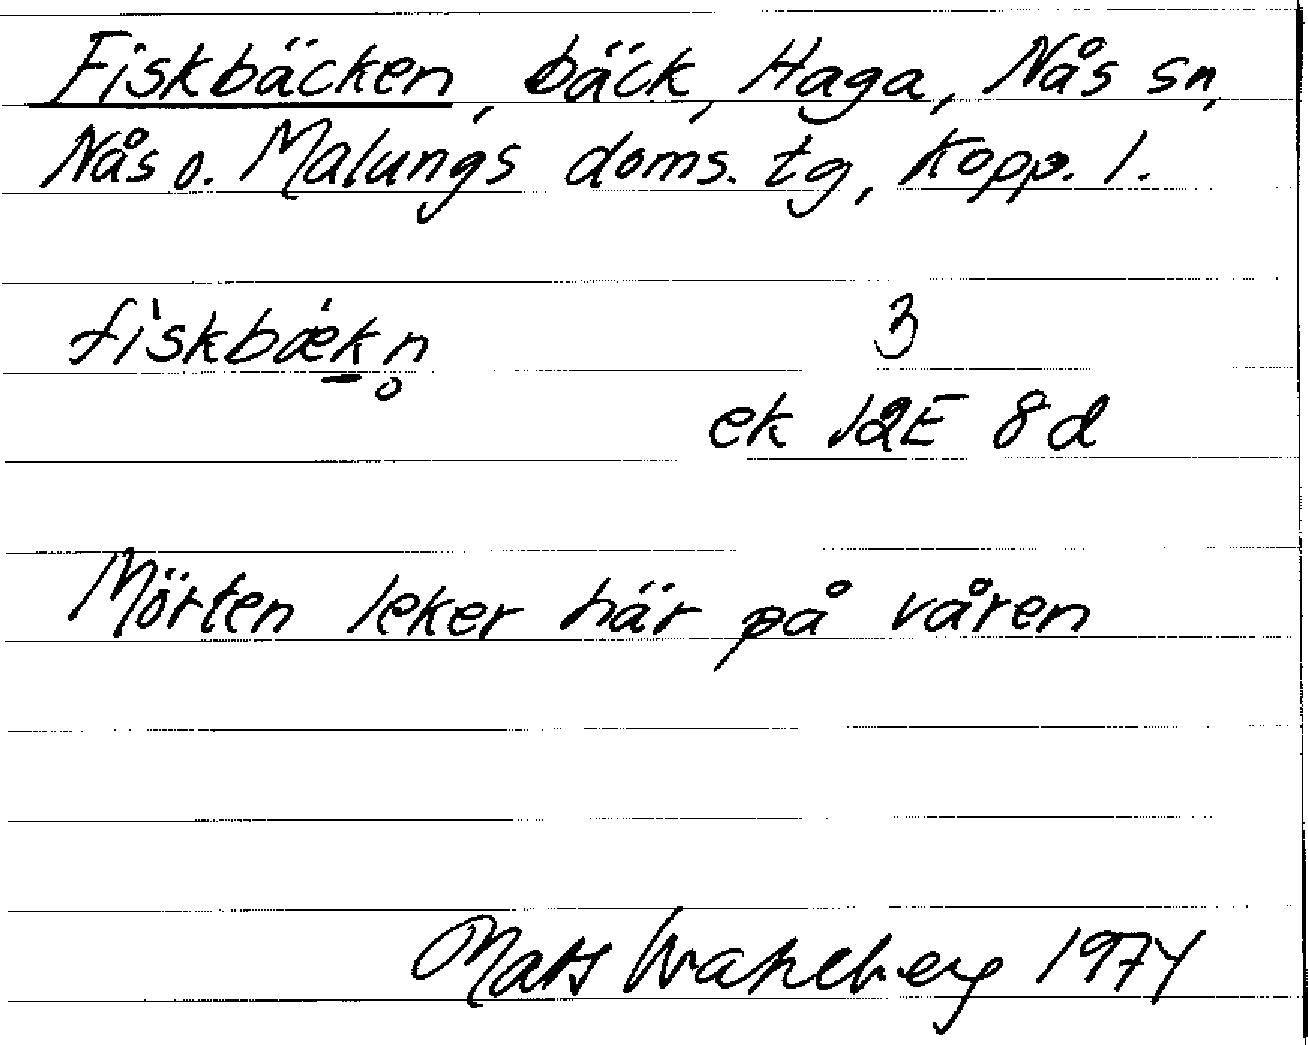 Fiskbäcken, bäck, Haga, Nås sn,
Nås o. Malungs doms. tg, Kopp. l.
fìskbæ̀k̠n̥ 3
ek 12E 8d
Mörten leker här på våren
Mats Wahlberg 1974